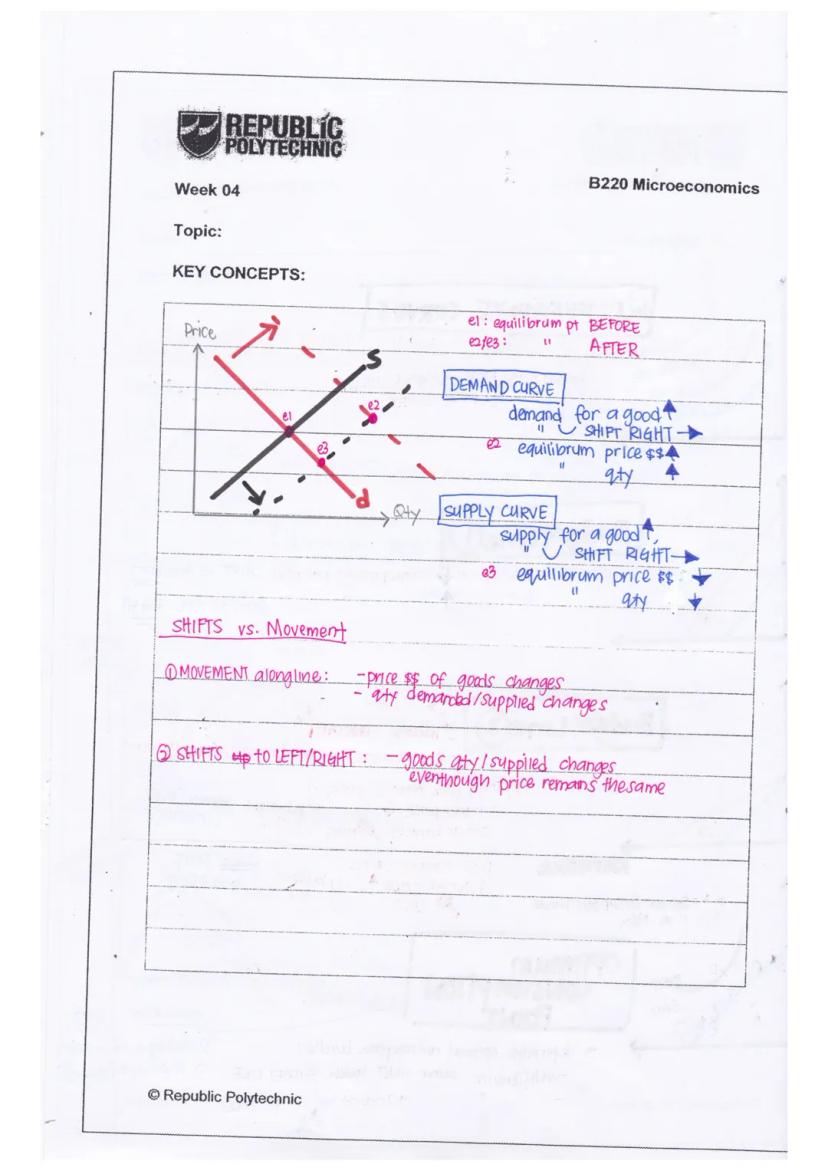 REPUBLIC
POLYTECHNIC
Week 04
B220 Microeconomics
Topic:
KEY CONCEPTS:
Price
S
e1
e2
e3
d
Qty
e1: equilibrum pt BEFORE
e2/e3: " AFTER
DEMAND CURVE
demand for a good ↑
" SHIFT RIGHT →
e2 equilibrum price $$ ↑
" qty ↑
SUPPLY CURVE
supply for a good ↑,
" SHIFT RIGHT →
e3 equilibrum price $$ : ↓
" qty ↓
SHIFTS vs. Movement
① MOVEMENT along line: - price $$ of goods changes
- qty demanded/supplied changes
② SHIFTS to LEFT/RIGHT: - goods qty/supplied changes
eventhough price remains the same
© Republic Polytechnic